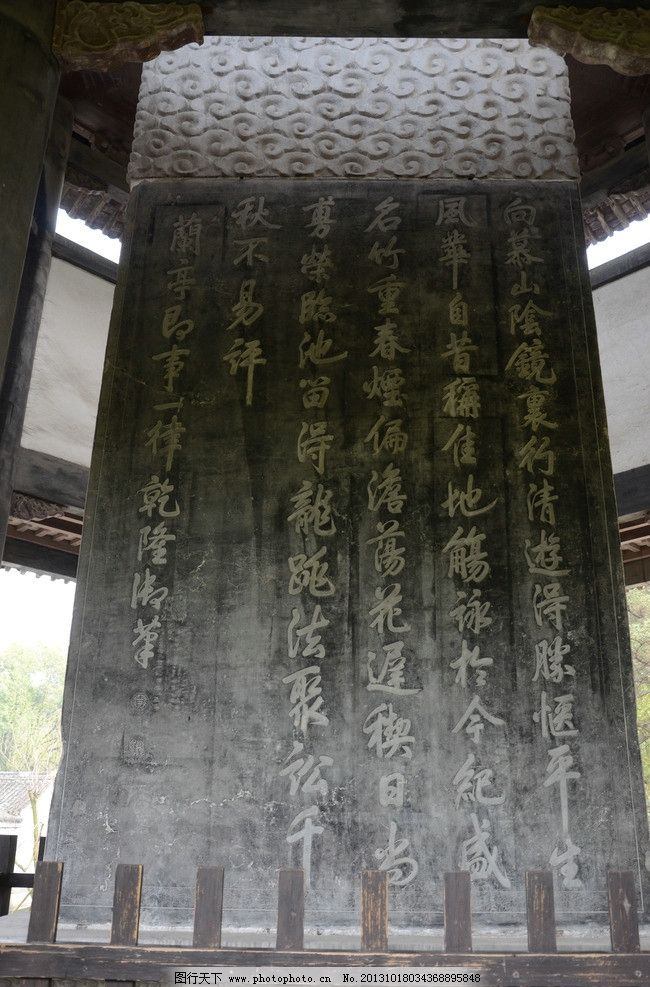 向慕山陰鏡裏行清遊得勝愜平生
風華自昔稱佳地觴詠於今紀盛
名竹重春煙偏澹蕩花遲禊日尚
敷榮臨池留得龍跳法聚訟千
秋不易評
蘭亭即事一律乾隆御筆
图行天下 www.photophoto.cn No.20131018034368895848